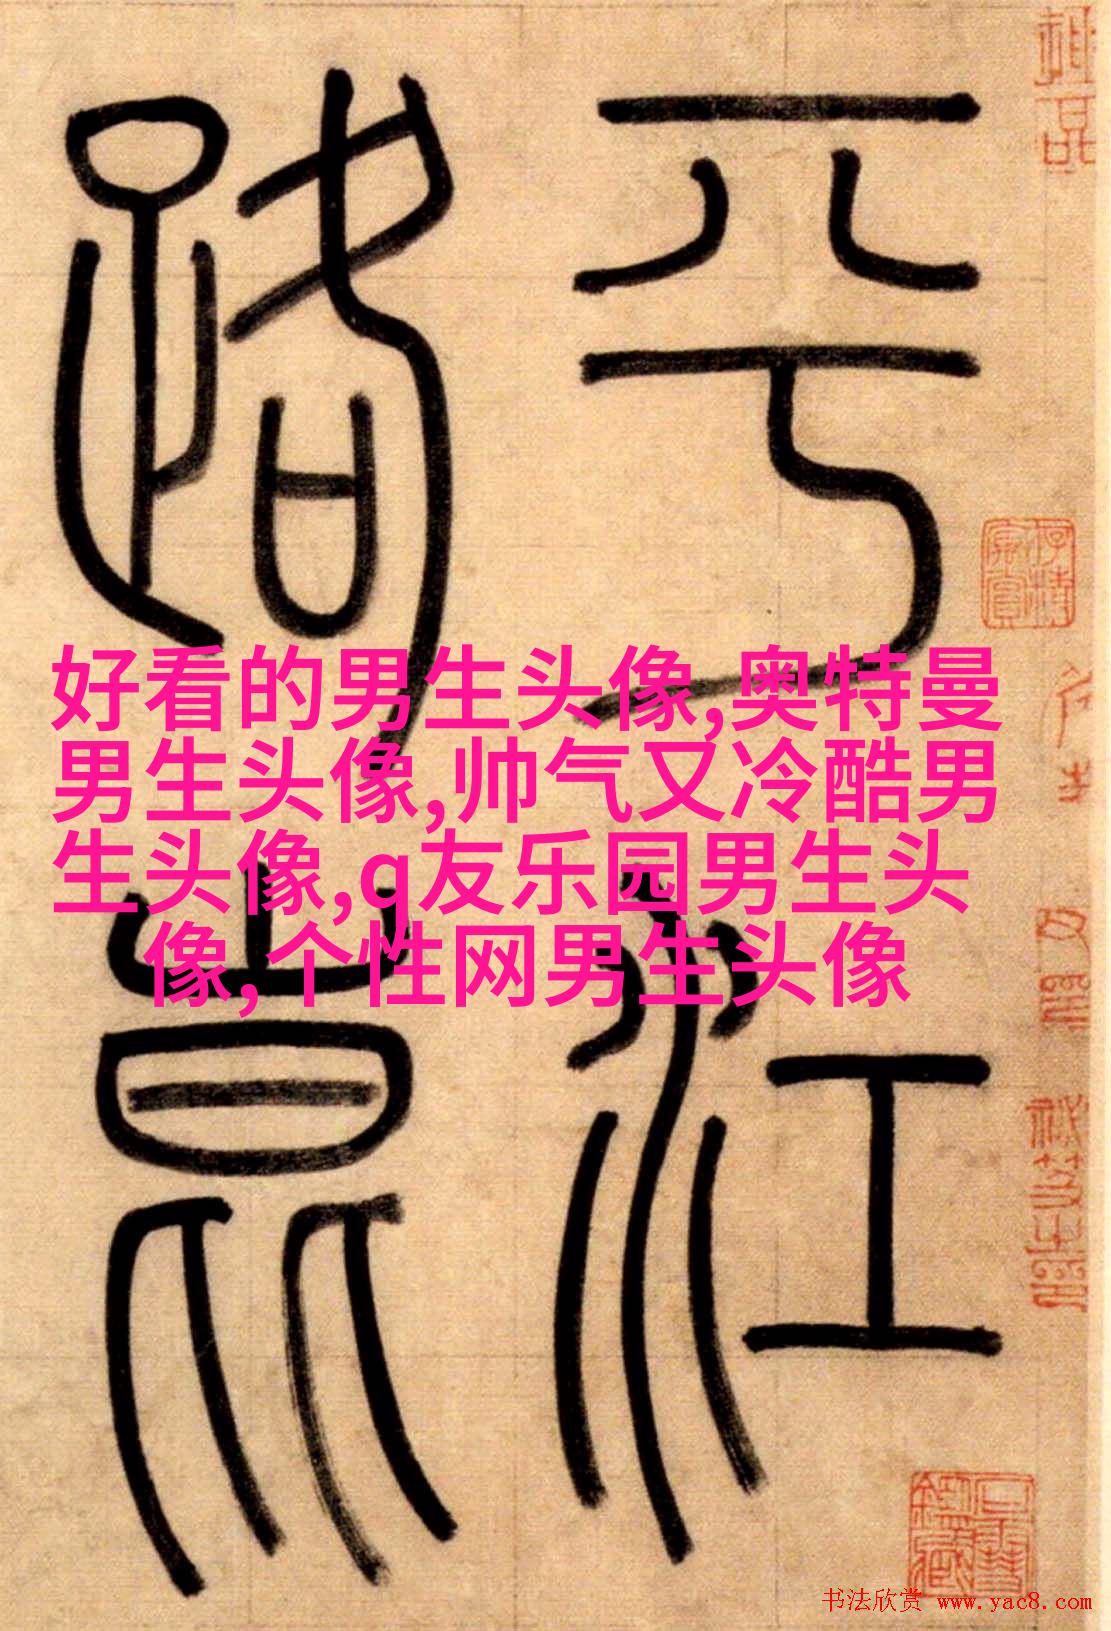 平江
路崑
好看的男生头像,奥特曼
男生头像,帅气又冷酷男
生头像,q友乐园男生头
像,个性网男生头像
书法欣赏 www.yac8.com